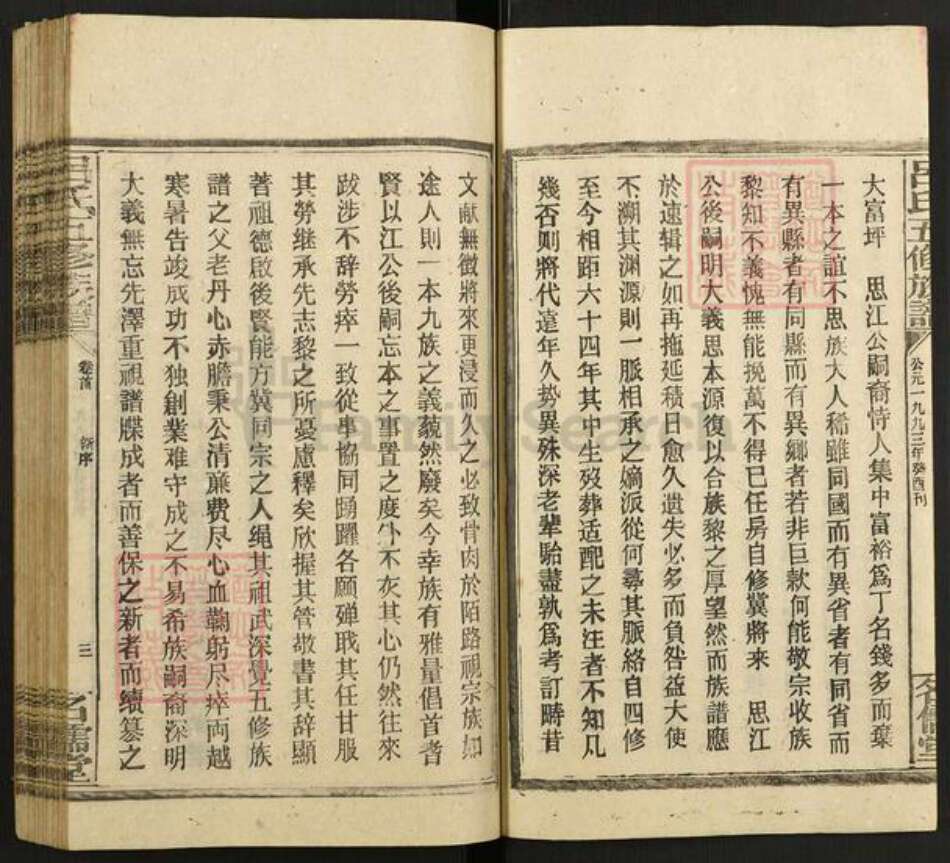 呂氏五修族譜
公元一九九三年癸酉刊
名儒堂
大富坪　思江公嗣裔恃人集中富裕爲丁名錢多而棄
一本之誼不思族大人稀雖同國而有異省者有同省而
有異縣者有同縣而有異鄉者若非巨款何能敬宗收族
黎知不義愧無能挽萬不得已任房自修冀將來　思江
公後嗣明大義思本源復以合族黎之厚望然而族譜應
於速辑之如再拖延積日愈久遺失必多而負咎益大使
不溯其渊源則一脈相承之嫡派從何尋其脈絡自四修
至今相距六十四年其中生殁葬适配之未注者不知凡
幾否则將代遠年久势異殊深老輩駘盡孰爲考訂畴昔
文献無徵將來更浸而久之必致骨肉於陌路視宗族如
途人則一本九族之義藐然廢矣今幸族有雅量倡首者
賢以江公後嗣忘本之事置之度外不灰其心仍然往來
跋涉不辞勞瘁一致從事協同踴躍各願殫戢其任甘服
其勞继承先志黎之所憂慮釋矣欣握其管敬書其辞顯
著祖德啟後賢能方冀同宗之人绳其祖武深覺五修族
譜之父老丹心赤膽秉公清亷费尽心血鞠躬尽瘁両越
寒暑告竣成功不独創業难守成之不易希族嗣裔深明
大義無忘先澤重視譜牒成者而善保之新者而續纂之
呂氏五修族譜
卷首
新序
三
名儒堂
FamilySearch